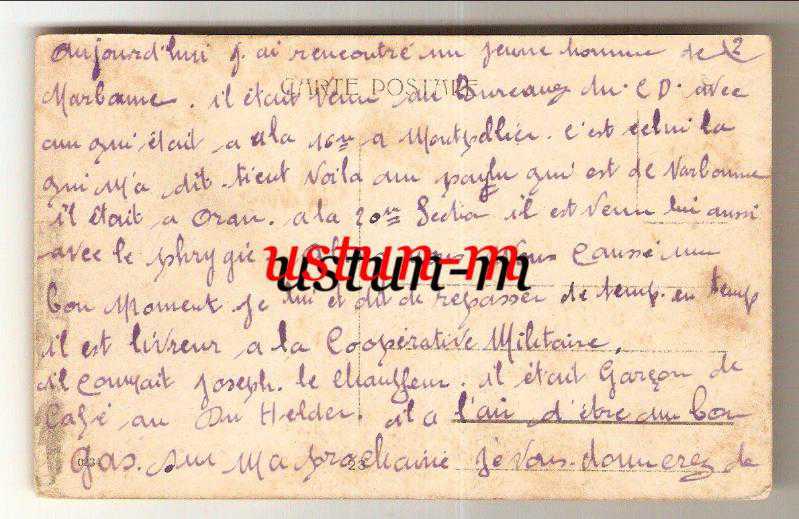 2
Aujourd'hui j. ai rencontré un jeune homme de
CARTE POSTALE
Narbonne. il était venu au Bureaux du. C D. avec
un qui était a a la 16em a Montpellier. C'est celui la
qui m'a dit. tient voila un payïs qui est de Narbonne
il était a Oran. a la 20em Section il est venu lui aussi
avec le phrygié nous Causé un
ustun-m
bon Moment je lui et dit de repasser de temp. en temp
il est livreur a la Coopérative Militaire.
il Connait Joseph. le Chauffeur. il était Garçon de
Café au Du Helder. il a l'air d'être un bon
gas. sur Ma prochaine je vous. donnerez de
23